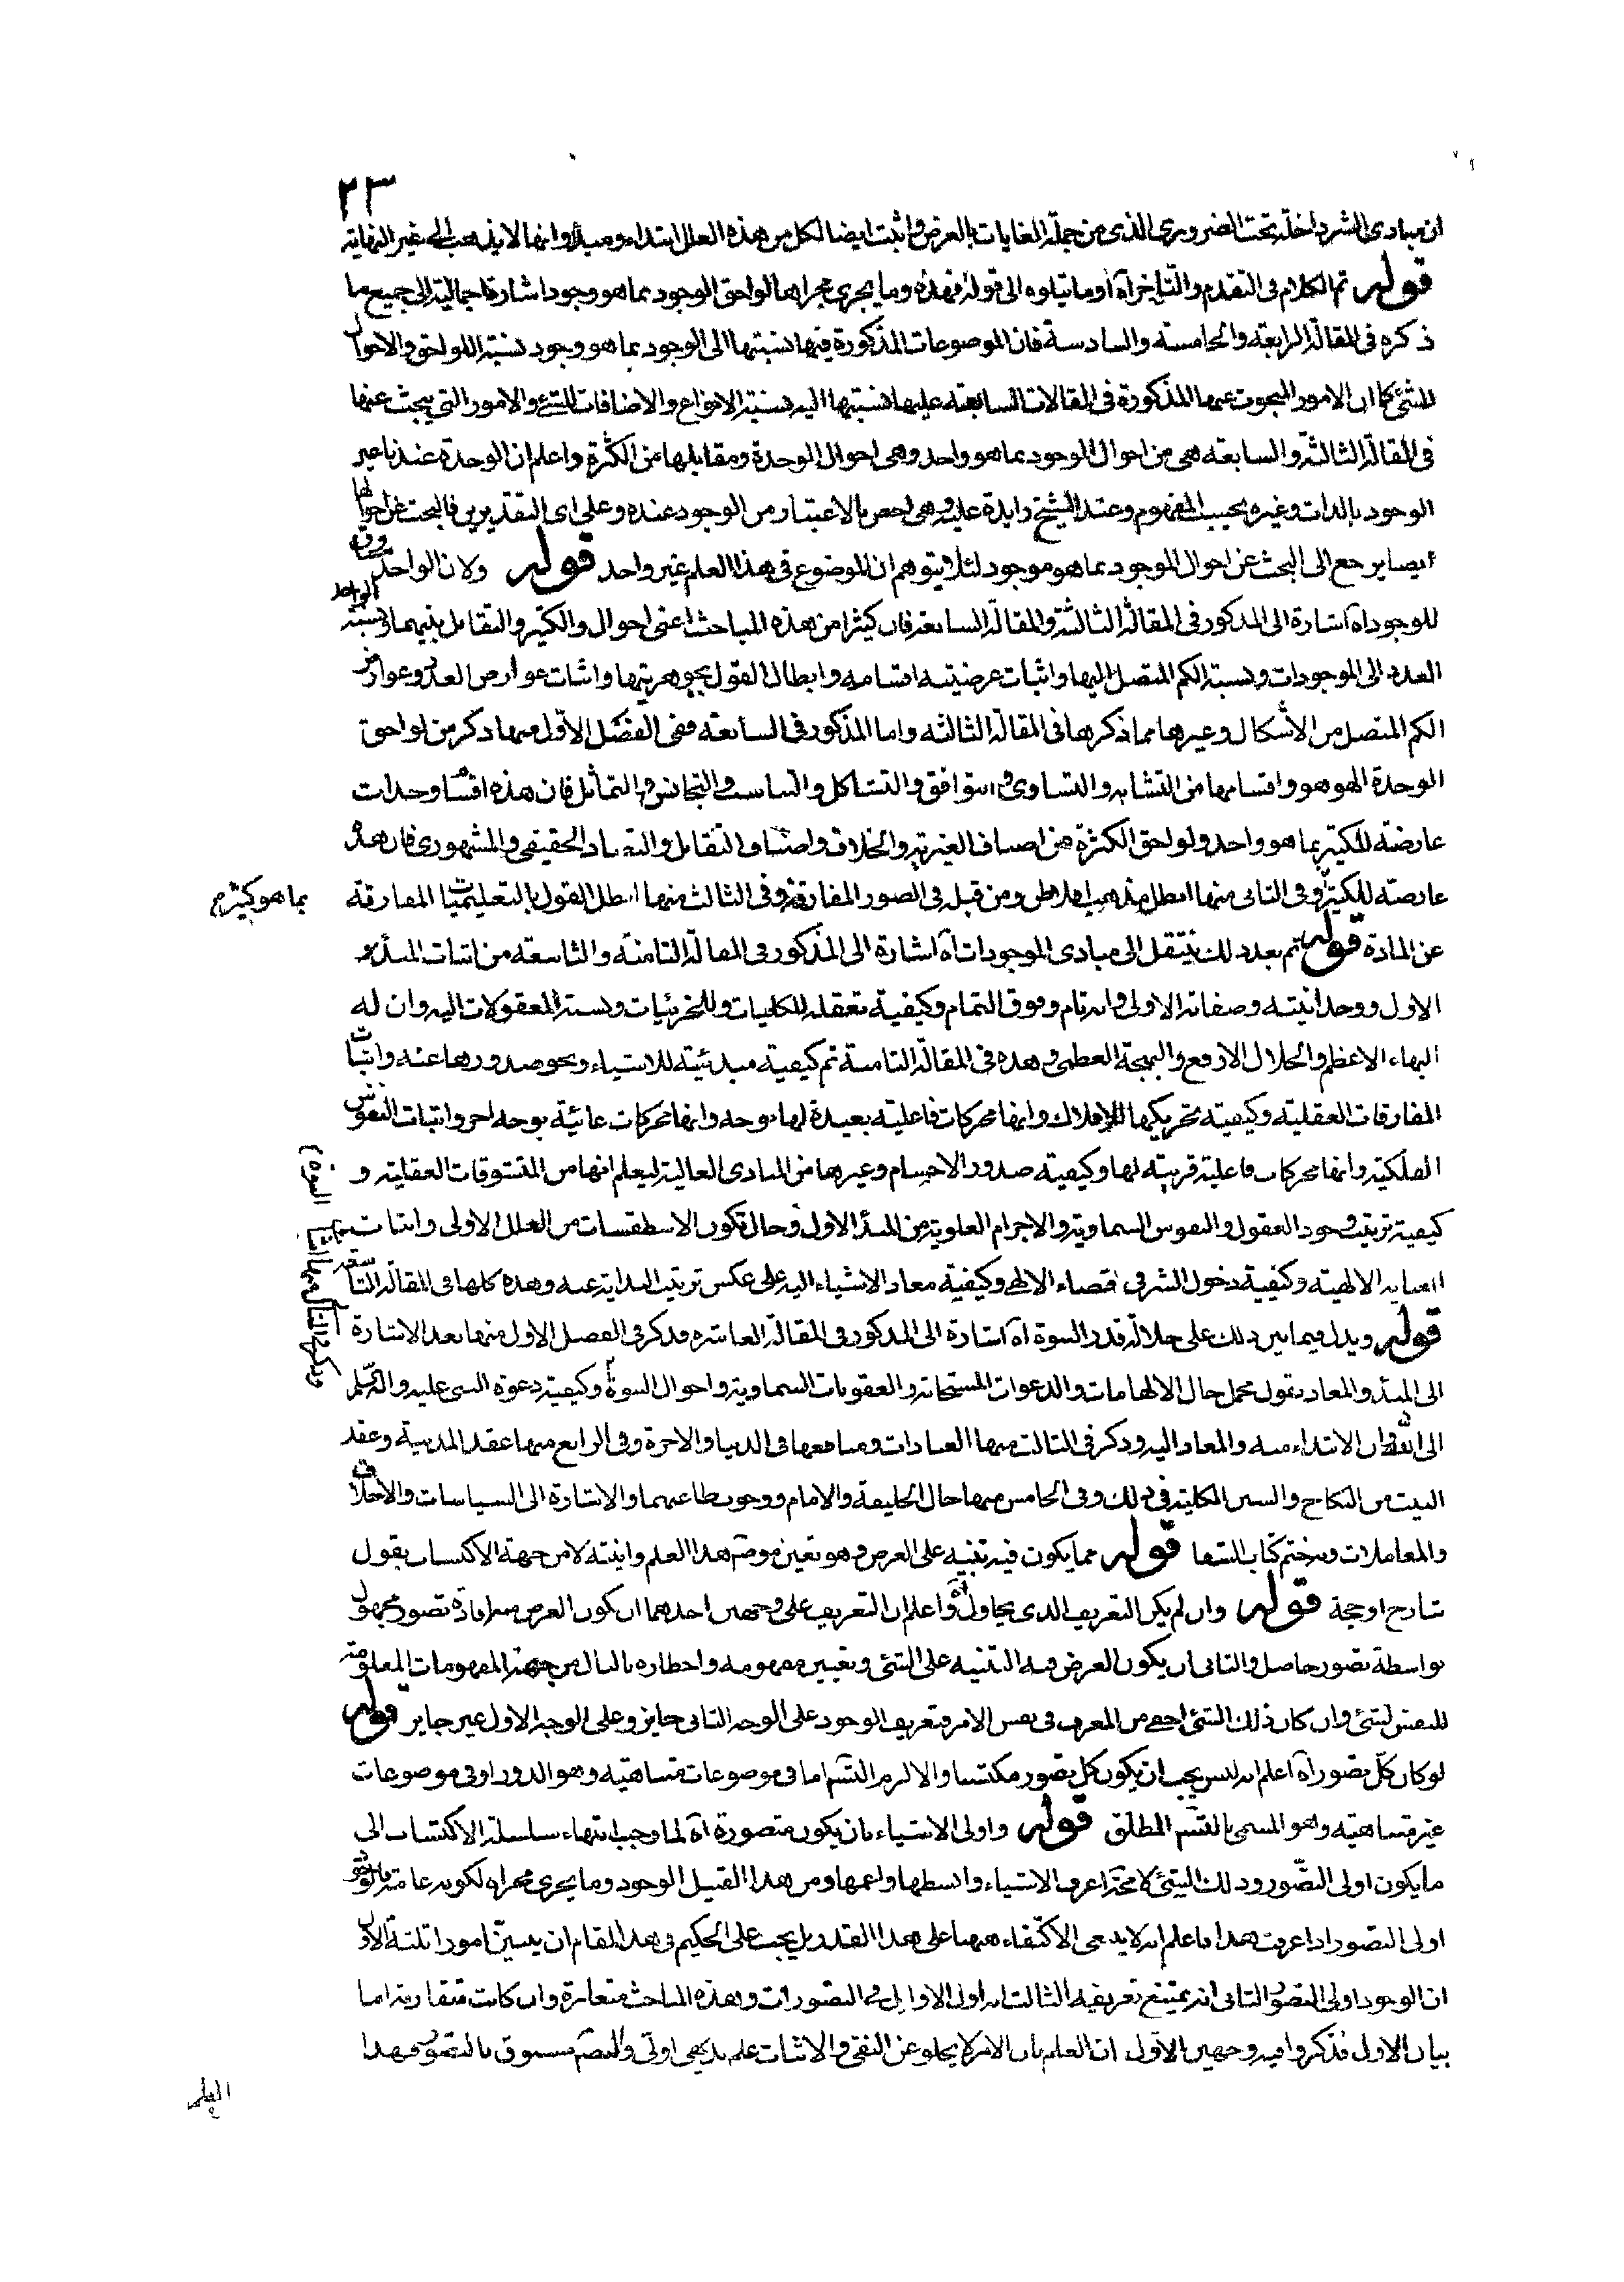 ٢٣
ان مبادى الشر داخلة تحت الضرورى الذى من جملة الغايات بالعرض واثبت ايضا لكل من هذه العلل ابتداء ومبدأ وانها لا يذهب الى غير النهاية
قوله ثم الكلام فى التقدم والتاخر آه وما يتلوه الى قوله فهذه وما يجرى مجراها لواحق الوجود بما هو وجود اشارة اجمالية الى جميع ما
ذكره فى المقالة الرابعة والخامسة والسادسة فان الموضوعات المذكورة فيها نسبتها الى الوجود بما هو وجود نسبة اللواحق والاحوال
للشئ كما ان الامور المبحوث عنها المذكورة فى المقالات السابقة عليها نسبتها اليه نسبة الانواع والاضافات للشئ والامور التى يبحث عنها
فى المقالة الثالثة والسابعة هى من احوال الوجود بما هو واحد وهى احوال الوحدة ومقابلها من الكثرة واعلم ان الوحدة عندنا عين
الوجود بالذات وغيره بحسب المفهوم وعند الشيخ زايدة عليه وهى اخص بالاعتبار من الوجود عنده وعلى اى التقديرين فالبحث عن احوالها
ايضا يرجع الى البحث عن احوال الموجود بما هو موجود لئلا يتوهم ان الموضوع فى هذا العلم غير واحد قوله ولان الواحد مساوق
للوجود آه اشارة الى المذكور فى المقالة الثالثة والمقالة السابعة فان كثيرا من هذه المباحث اعنى احوال الواحد والكثير والتقابل بينهما ونسبة
العدد الى الموجودات ونسبة الكم المتصل اليها واثبات عرضيته اقسامه وابطال القول بجوهريتها واثبات عوارض العدد وعوارض
الكم المتصل من الاشكال وغيرها مما ذكرها فى المقالة الثالثة واما المذكور فى السابعة ففى الفصل الاول منها ذكر من لواحق
الوحدة الهوهو واقسامها من التشابه والتساوى والتوافق والتشاكل والتناسب والتجانس والتماثل فان هذه اقسام وحدات
عارضة للكثير بما هو واحد ولواحق الكثرة من اصناف الغيرية والخلاف واصناف التقابل والتضاد الحقيقى والمشهورى فان هذه
عارضة للكثير بما هو كثير وفى الثانى منها ابطل مذهب افلاطن ومن قبله فى الصور المفارقة وفى الثالث منها ابطل القول بالتعليميات المفارقة
عن المادة قوله ثم بعد ذلك ننتقل الى مبادى الموجودات آه اشارة الى المذكور فى المقالة الثامنة والتاسعة من اثبات المبدأ
الاول ووحدانيته وصفاته الاولى وانه تام وفوق التمام وكيفية تعقله للكليات وللجزئيات ونسبة المعقولات اليه وان له
البهاء الاعظم والجلال الارفع والبهجة العظمى وهذه فى المقالة الثامنة ثم كيفية مبدئيته للاشياء ونحو صدورها عنه واثبات
المفارقات العقلية وكيفية تحريكها للافلاك وانها محركات فاعلية بعيدة لها بوجه وانها محركات غائية بوجه اخر واثبات النفوس
الفلكية وانها محركات فاعلية قريبة لها وكيفية صدور الاجسام وغيرها من المبادى العالية ليعلم انها من المتشوقات العقلية و
كيفية ترتيب وجود العقول والنفوس السماوية والاجرام العلوية من المبدأ الاول وحال تكون الاسطقسات من العلل الاولى واثبات
العناية الالهية وكيفية دخول الشر فى القضاء الالهى وكيفية معاد الاشياء اليه على عكس ترتيب البداية عنه وهذه كلها فى المقالة التاسعة
قوله ويدل فيما بين ذلك على جلالة قدر النبوة آه اشارة الى المذكور فى المقالة العاشرة فذكر فى الفصل الاول منها بعد الاشارة
الى المبدأ والمعاد بقول مجمل حال الالهامات والدعوات المستجابة والعقوبات السماوية واحوال النبوة وكيفية دعوة النبى عليه وآله السلم
الى الله وان الابتداء منه والمعاد اليه وذكر فى الثالث منها العبادات ومنافعها فى الدنيا والاخرة وفى الرابع منها عقد المدينة وعقد
البيت من النكاح والسنن الكلية فى ذلك وفى الخامس منها حال الخليفة والامام ووجوب طاعتهما والاشارة الى السياسات والاخلاق
والمعاملات وبه ختم كتاب الشفا قوله مما يكون فيه تنبيه على الغرض وهو تعين موضع هذا العلم وانيته لا من جهة الاكتساب بقول
شارح او حجة قوله وان لم يكن التعريف الذى يحاول آه واعلم ان التعريف على وجهين احدهما ان يكون الغرض منه افادة تصور مجهول
بواسطة تصور حاصل والثانى ان يكون الغرض منه التنبيه على الشئ وتعيين مفهومه واخطاره بالبال من جهة المفهومات المعلومة
للنفس لشئ وان كان ذلك الشئ اخفى من المعرف فى نفس الامر فتعريف الوجود على الوجه الثانى جايز وعلى الوجه الاول غير جايز قوله
لو كان كل تصور آه اعلم انه ليس يجب ان يكون كل تصور مكتسبا والا لزم التسلسل اما فى موضوعات متناهية وهو الدور او فى موضوعات
غير متناهية وهو المسمى بالتسلسل المطلق قوله واولى الاشياء بان يكون متصورة آه لما وجب انتهاء سلسلة الاكتساب الى
ما يكون اولى التصور وذلك الشئ لا محالة اعرف الاشياء وابسطها واعمها ومن هذا القبيل الوجود وما يجرى مجراه لكونه عامة فالوجود
اولى التصور اذا عرفت هذا فاعلم انه لا ينبغى الاكتفاء ههنا على هذا القدر بل يجب على الحكيم فى هذا المقام ان يبين امورا ثلثة الاول
ان الوجود اولى التصور الثانى انه يمتنع تعريفه الثالث انه اول الاوايل فى التصورات وهذه المباحث متغايرة وان كانت متقاربة اما
بيان الاول فذكروا فيه وجهين الاول ان العلم بان الامر لا يخلو عن النفى والاثبات علم بديهى اولى والتصديق مسبوق بالتصور فهذا
العلم